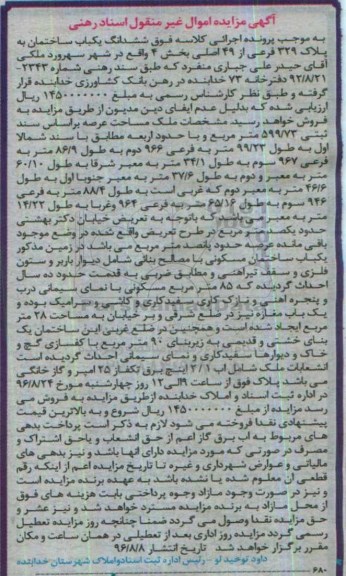 آگهی مزایده اموال غیر منقول اسناد رهنی
به موجب پرونده اجرائی کلاسه فوق ششدانگ یکباب ساختمان به
پلاک ۳۲۹ فرعی از ۴۹ اصلی بخش ۴ واقع در شهر سهرورد ملکی
آقای حیدر علی جباری منفرد که طبق سند رهنی شماره ۲۳۴۳-
۹۲/۸/۲۱ دفترخانه ۷۳ خدابنده در رهن بانک کشاورزی خدابنده قرار
گرفته و طبق نظر کارشناس رسمی به مبلغ ۱۴۵۰۰۰۰۰۰۰ ریال
ارزیابی شده که بدلیل عدم ایفای دین مدیون از طریق مزایده به
فروش خواهد رسید. مشخصات ملک مساحت عرصه براساس سند
ثبتی ۵۹۹/۷۳ متر مربع و با حدود اربعه مطابق با سند شمالا
اول به طول ۹۹/۲۳ متر به فرعی ۹۶۶ دوم به طول ۸۶/۹ متر به
فرعی ۹۶۷ سوم به طول ۳۴/۱ متر به معبر شرقا به طول ۶۰/۱۰
متر به معبر و دوم به طول ۳۷/۶ متر به معبر جنوبا اول به طول
۴۶/۶ متر به معبر دوم که غربی است به طول ۸۸/۴ متر به فرعی
۹۴۶ سوم به طول ۶۵/۱۶ متر به فرعی ۹۶۴ وغربا به طول ۱۴/۲۲
متر به معبر می باشد که باتوجه به تعریض خیابان دکتر بهشتی
حدود یکصد متر مربع در طرح تعریض واقع شده در وضع موجود
باقی مانده عرصه حدود پانصد متر مربع می باشد در زمین مذکور
یکباب ساختمان مسکونی با مصالح بنائی شامل دیوار باربر و ستون
فلزی و سقف تیرآهنی و مطابق ضربی به قدمت حدود ده سال
احداث گردیده که ۸۵ متر مربع مسکونی با نمای سیمانی درب
و پنجره آهنی و نازک کاری سفیدکاری و کاشی و سرامیک بوده و
یک باب مغازه نیز در ضلع شرقی و در خیابان به مساحت ۲۸ متر
مربع ایجاد شده است و همچنین در ضلع غربی این ساختمان یک
بنای خشتی و قدیمی به زیربنای ۹۰ متر مربع با کفسازی گچ و
خاک و دیوارها سفیدکاری و نمای سیمانی احداث گردیده است
انشعابات ملک شامل آب ۲/۱ اینچ برق تکفاز ۲۵ آمپر و گاز خانگی
می باشد پلاک فوق از ساعت ۹الی۱۲ روز چهارشنبه مورخ ۹۶/۸/۲۴
در اداره ثبت اسناد و املاک خدابنده ازطریق مزایده به فروش می
رسد مزایده از مبلغ ۱۴۵۰۰۰۰۰۰۰ ریال شروع و به بالاترین قیمت
پیشنهادی نقدا فروخته می شود لازم به ذکر است پرداخت بدهی
های مربوط به آب برق گاز اعم از حق انشعاب و یاحق اشتراک و
مصرف در صورتی که مورد مزایده دارای آنها باشد و نیز بدهی های
مالیاتی و عوارض شهرداری و غیره تا تاریخ مزایده اعم از اینکه رقم
قطعی آن معلوم شده یا نشده باشد به عهده برنده مزایده است
و نیز در صورت وجود مازاد وجوه پرداختی بابت هزینه های فوق
از محل مازاد به برنده مزایده مسترد خواهد شد و نیز عشر و
حق مزایده نقدا وصول می گردد ضمنا چنانچه روز مزایده تعطیل
رسمی گردد مزایده روز اداری بعد از تعطیلی در همان ساعت و مکان
مقرر برگزار خواهد شد تاریخ انتشار ۹۶/۸/۸
داود توحید لو - رئیس اداره ثبت اسنادواملاک شهرستان خدابنده
۶۸۰